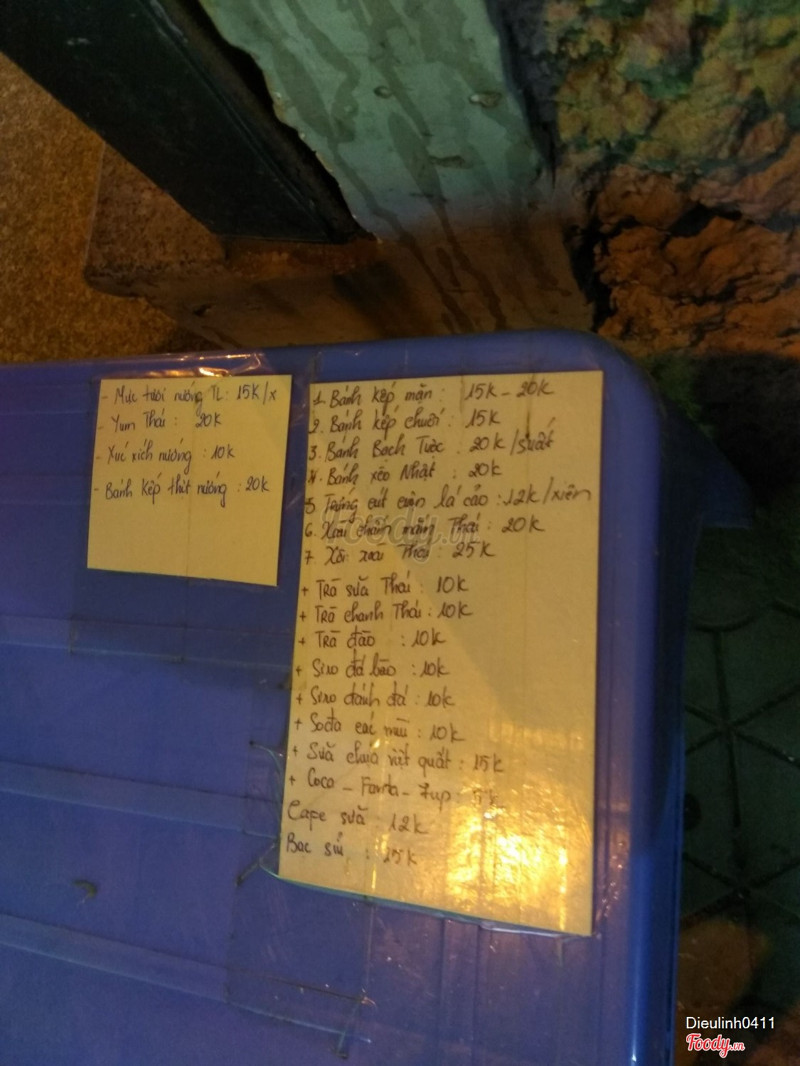 - Mực tươi nướng TL : 15K/x
- Yum Thái : 20k
- Xúc xích nướng : 10k
- Bánh kếp thịt nướng : 20k
1. Bánh kếp mặn : 15k - 20k
2. Bánh kếp chuối : 15k
3. Bánh Bạch Tuộc : 20k/suất
4. Bánh xèo Nhật : 20k
5. Trứng cút cuộn lá cảo : 12k/xiên
6. Xoài chấm mắm Thái : 20k
7. Xôi xoài Thái : 25k
+ Trà sữa Thái : 10k
+ Trà chanh Thái : 10k
+ Trà đào : 10k
+ Siro đá bào : 10k
+ Siro đánh đá : 10k
+ Sođa các mùi : 10k
+ Sữa chua việt quất : 15k
+ Coca - Fanta - 7up :
Cafe sữa : 12k
Bạc sỉu : 15k
foody.vn
Dieulinh0411
Foody.vn